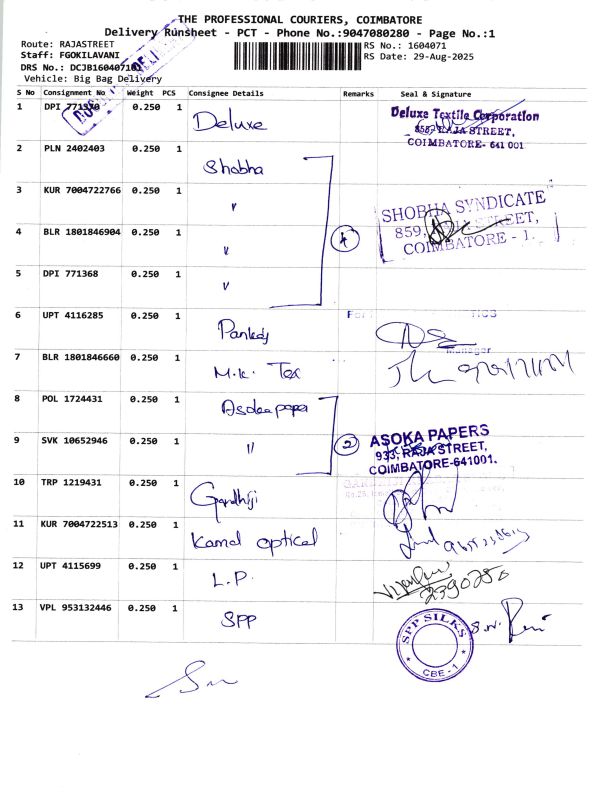 THE PROFESSIONAL COURIERS, COIMBATORE
Delivery Runsheet - PCT - Phone No.:9047080280 - Page No.:1
Route: RAJASTREET
RS No.: 1604071
Staff: FGOKILAVANI
RS Date: 29-Aug-2025
DRS No.: DCJB1604071
Vehicle: Big Bag Delivery
S No Consignment No Weight PCS Consignee Details Remarks Seal & Signature
1 DPI 0.250 1 Deluxe
Deluxe Textile Corporation
RAJA STREET,
COIMBATORE- 641 001
2 PLN 2402403 0.250 1 Shobha
3 KUR 7004722766 0.250 1 "
SHOBHA SYNDICATE
859, STREET,
COIMBATORE - 1.
4 BLR 1801846904 0.250 1 " 4
5 DPI 771368 0.250 1 "
6 UPT 4116285 0.250 1 Pankaj
Manager
7 BLR 1801846660 0.250 1 M.K. Tex
8 POL 1724431 0.250 1 Asokapaper
9 SVK 10652946 0.250 1 " 2
ASOKA PAPERS
933, RAJA STREET,
COIMBATORE-641001.
10 TRP 1219431 0.250 1 Gandhiji
11 KUR 7004722513 0.250 1 Kamal optical
12 UPT 4115699 0.250 1 L.P.
13 VPL 953132446 0.250 1 SPP
SPP SILKS
CBE - 1